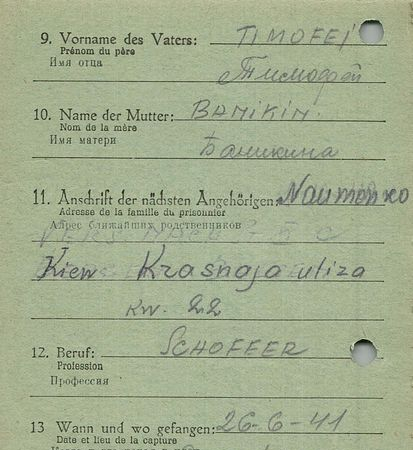 9. Vorname des Vaters: TIMOFEI
Prénom du père
Имя отца
Тимофей
10. Name der Mutter: BANIKIN.
Nom de la mère
Имя матери
Баникина
11. Anschrift der nächsten Angehörigen: Naumenko
Adresse de la famille du prisonnier
Адрес ближайших родственников
Kiew Krasnaja uliza
KW. 22
12. Beruf: SCHOFFER
Profession
Профессия
13 Wann und wo gefangen: 26-6-41
Date et lieu de la capture